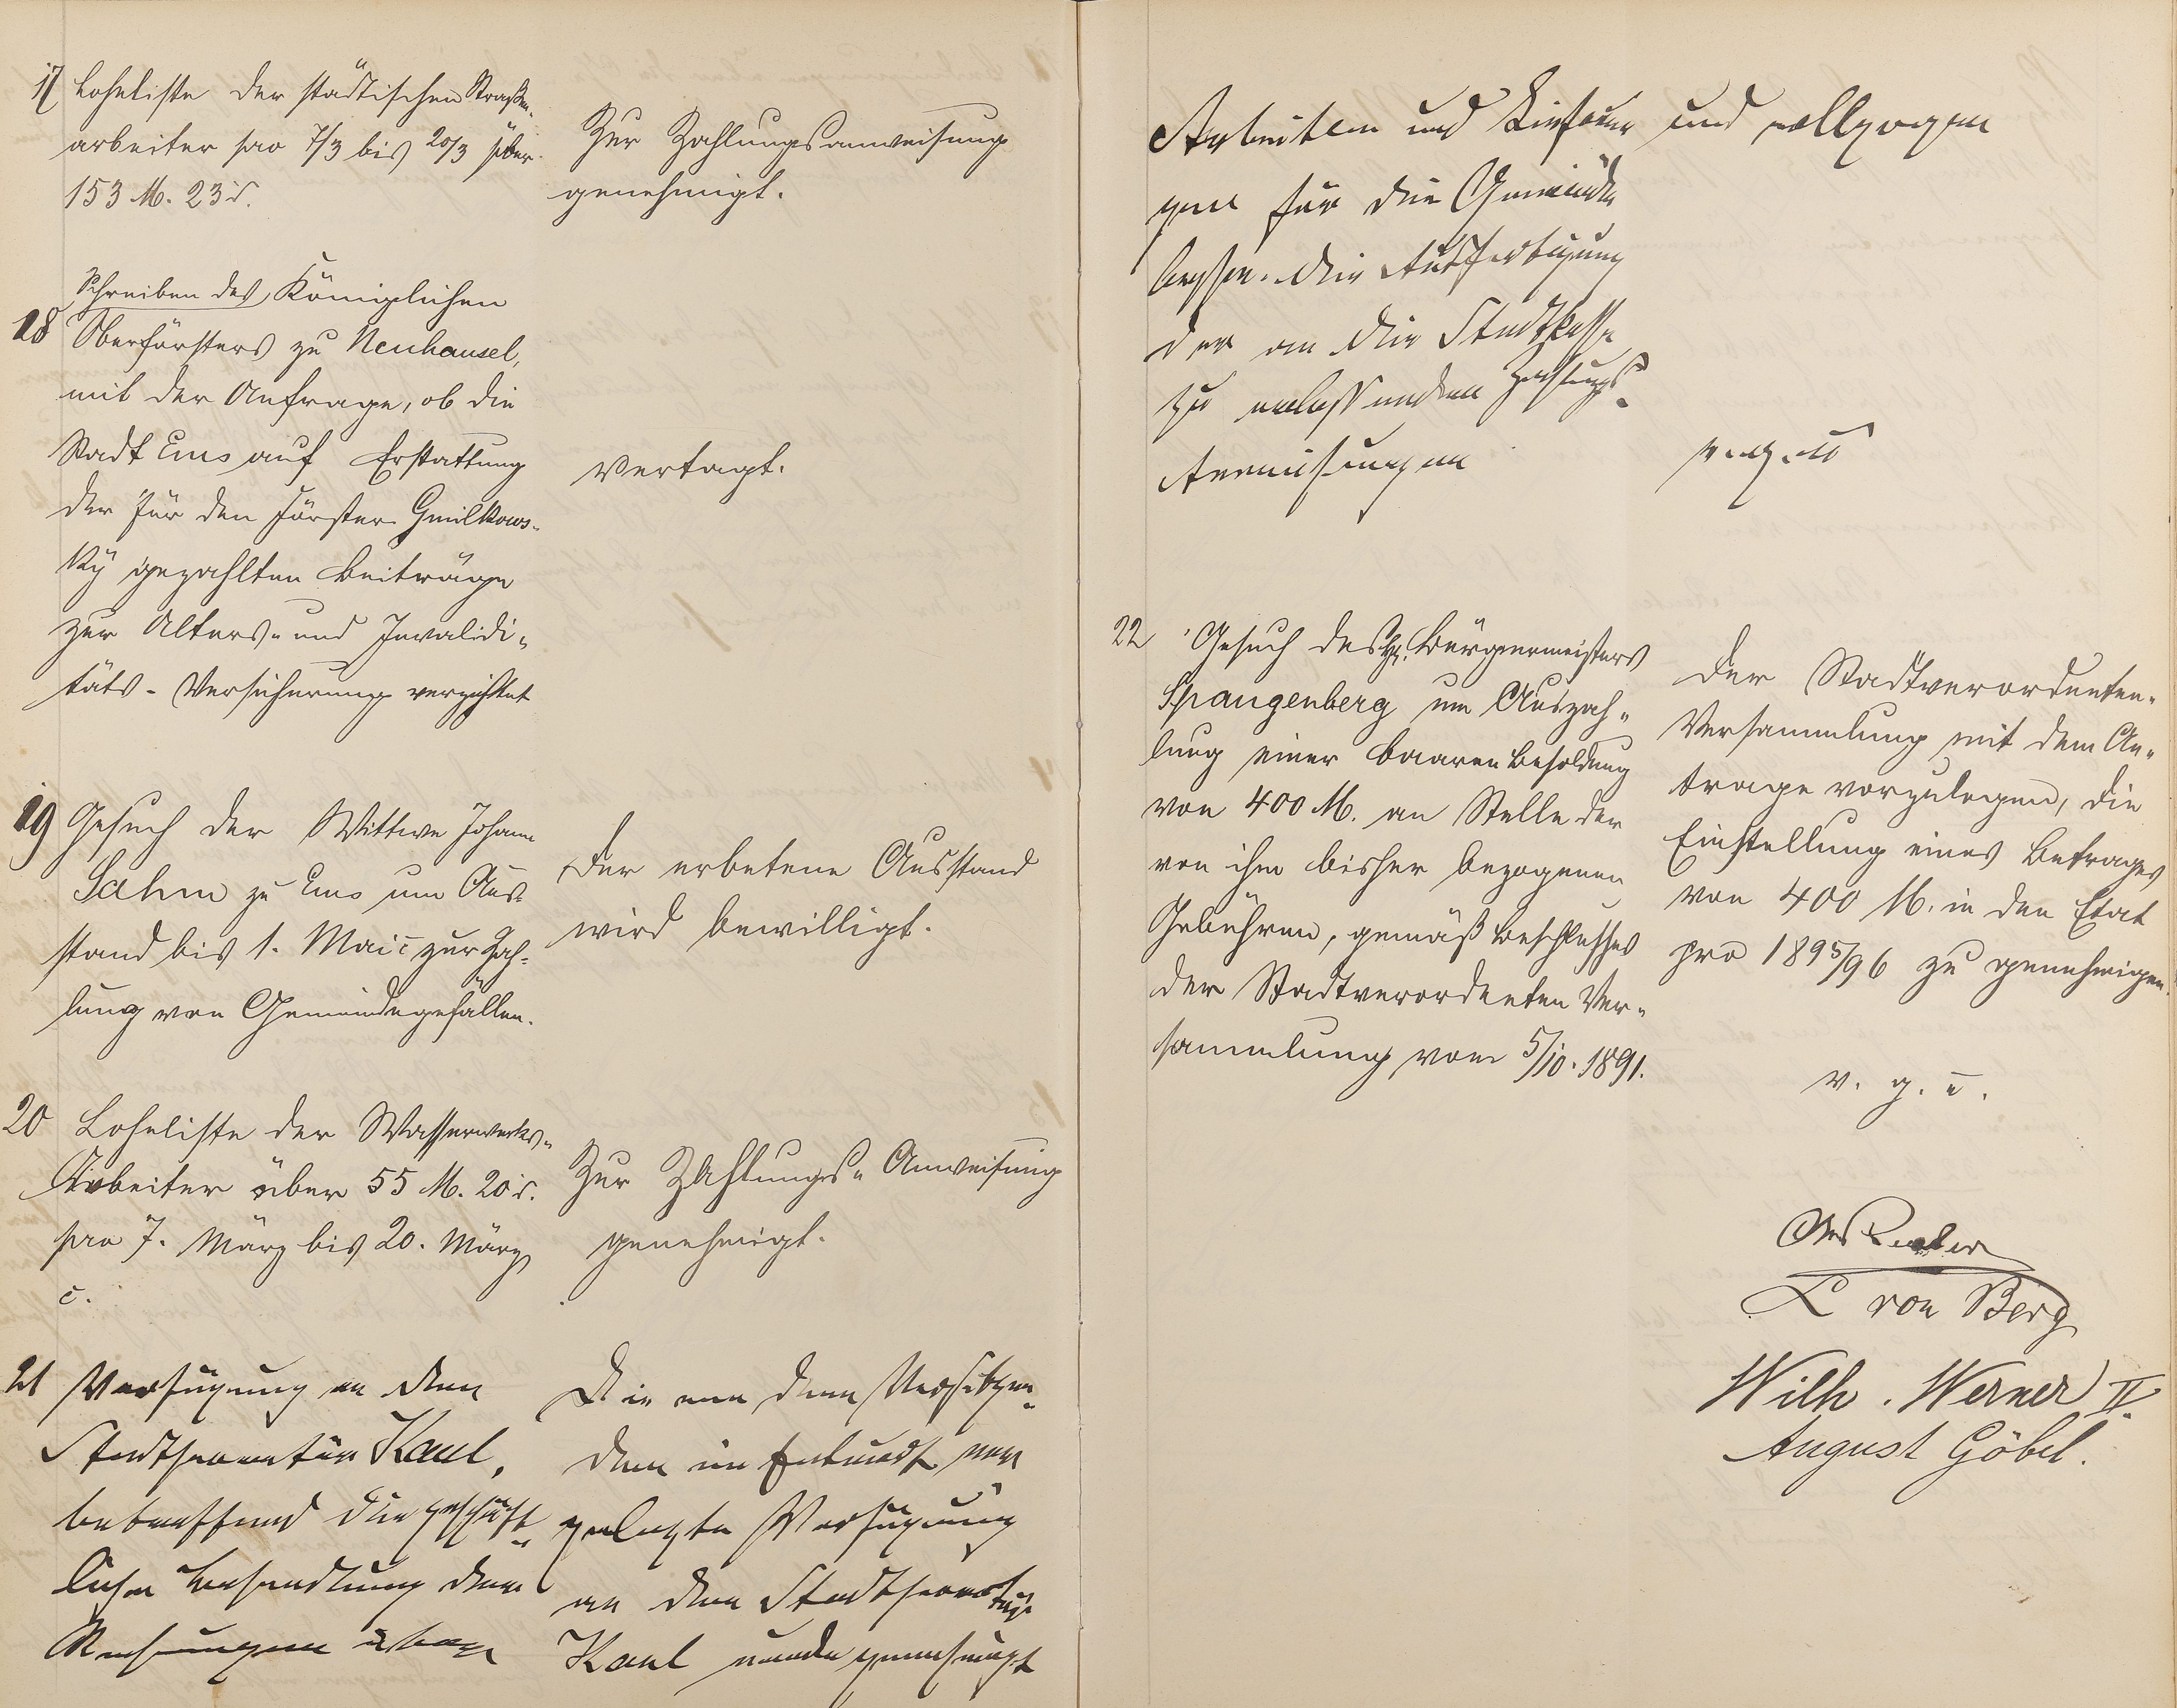 17 Lohnliste der städtischen Straßen-
arbeiter pro 7/3 bis 20/3 über
153 M. 23 d.
Zur Zahlungsanweisung
genehmigt.
Schreiben des Königlichen
18 Oberförsters zu Neuhäusel,
mit der Anfrage, ob die
Stadt Ems auf Erstattung
der für den Förster Gmilkows-
ky gezahlten Beiträge
zur Alters- und Invalidi-
täts-Versicherung verzichtet
Vertagt.
19 Gesuch der Wittwe Johann
Sahm zu Ems um Aus-
stand bis 1. Mai c. zur Zah-
lung von Gemeindegefällen.
Der erbetene Ausstand
wird bewilligt.
20 Lohnliste der Wasserwerks-
Arbeiter über 55 M. 20 d.
pro 7. März bis 20. März
c.
Zur Zahlungs-Anweisung
genehmigt.
21 Verfügung an den
Stadtsecretär Kaul,
betreffend die geschäft-
liche Behandlung der
Rechnungen über
Die von dem Vorsitzen-
den im Entwurf vor-
gelegte Verfügung
an den Stadtsecretär
Kaul wurde genehmigt
Arbeiten und Lieferun-
gen für die Gemeinde
bezw. die Ausfertigung
der an die Stadtkasse
zu erlassenden Zahlungs-
Anweisungen
und vollzogen
v. g. u.
22 Gesuch des H. Bürgermeisters
Spangenberg um Auszah-
lung einer baaren Besoldung
von 400 M. an Stelle der
von ihm bisher bezogenen
Gebühren, gemäß Beschlusses
der Stadtverordneten Ver-
sammlung vom 5/10. 1891.
Der Stadtverordneten-
Versammlung mit dem An-
trage vorzulegen, die
Einstellung eines Betrages
von 400 M. in den Etat
pro 1895/96 zu genehmigen.
v. g. u.
L von Berg
Wilh. Werner II.
August Göbel.